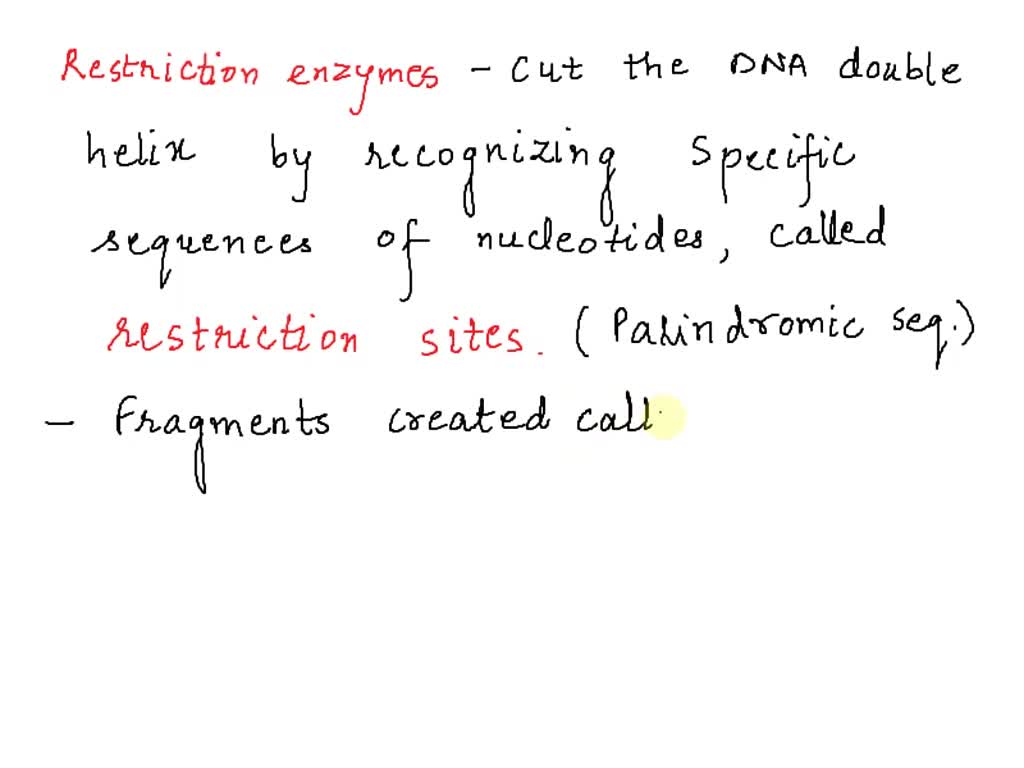 Restriction enzymes - cut the DNA double
helix by recognizing specific
sequences of nucleotides, called
restriction sites. (Palindromic seq.)
- Fragments created call